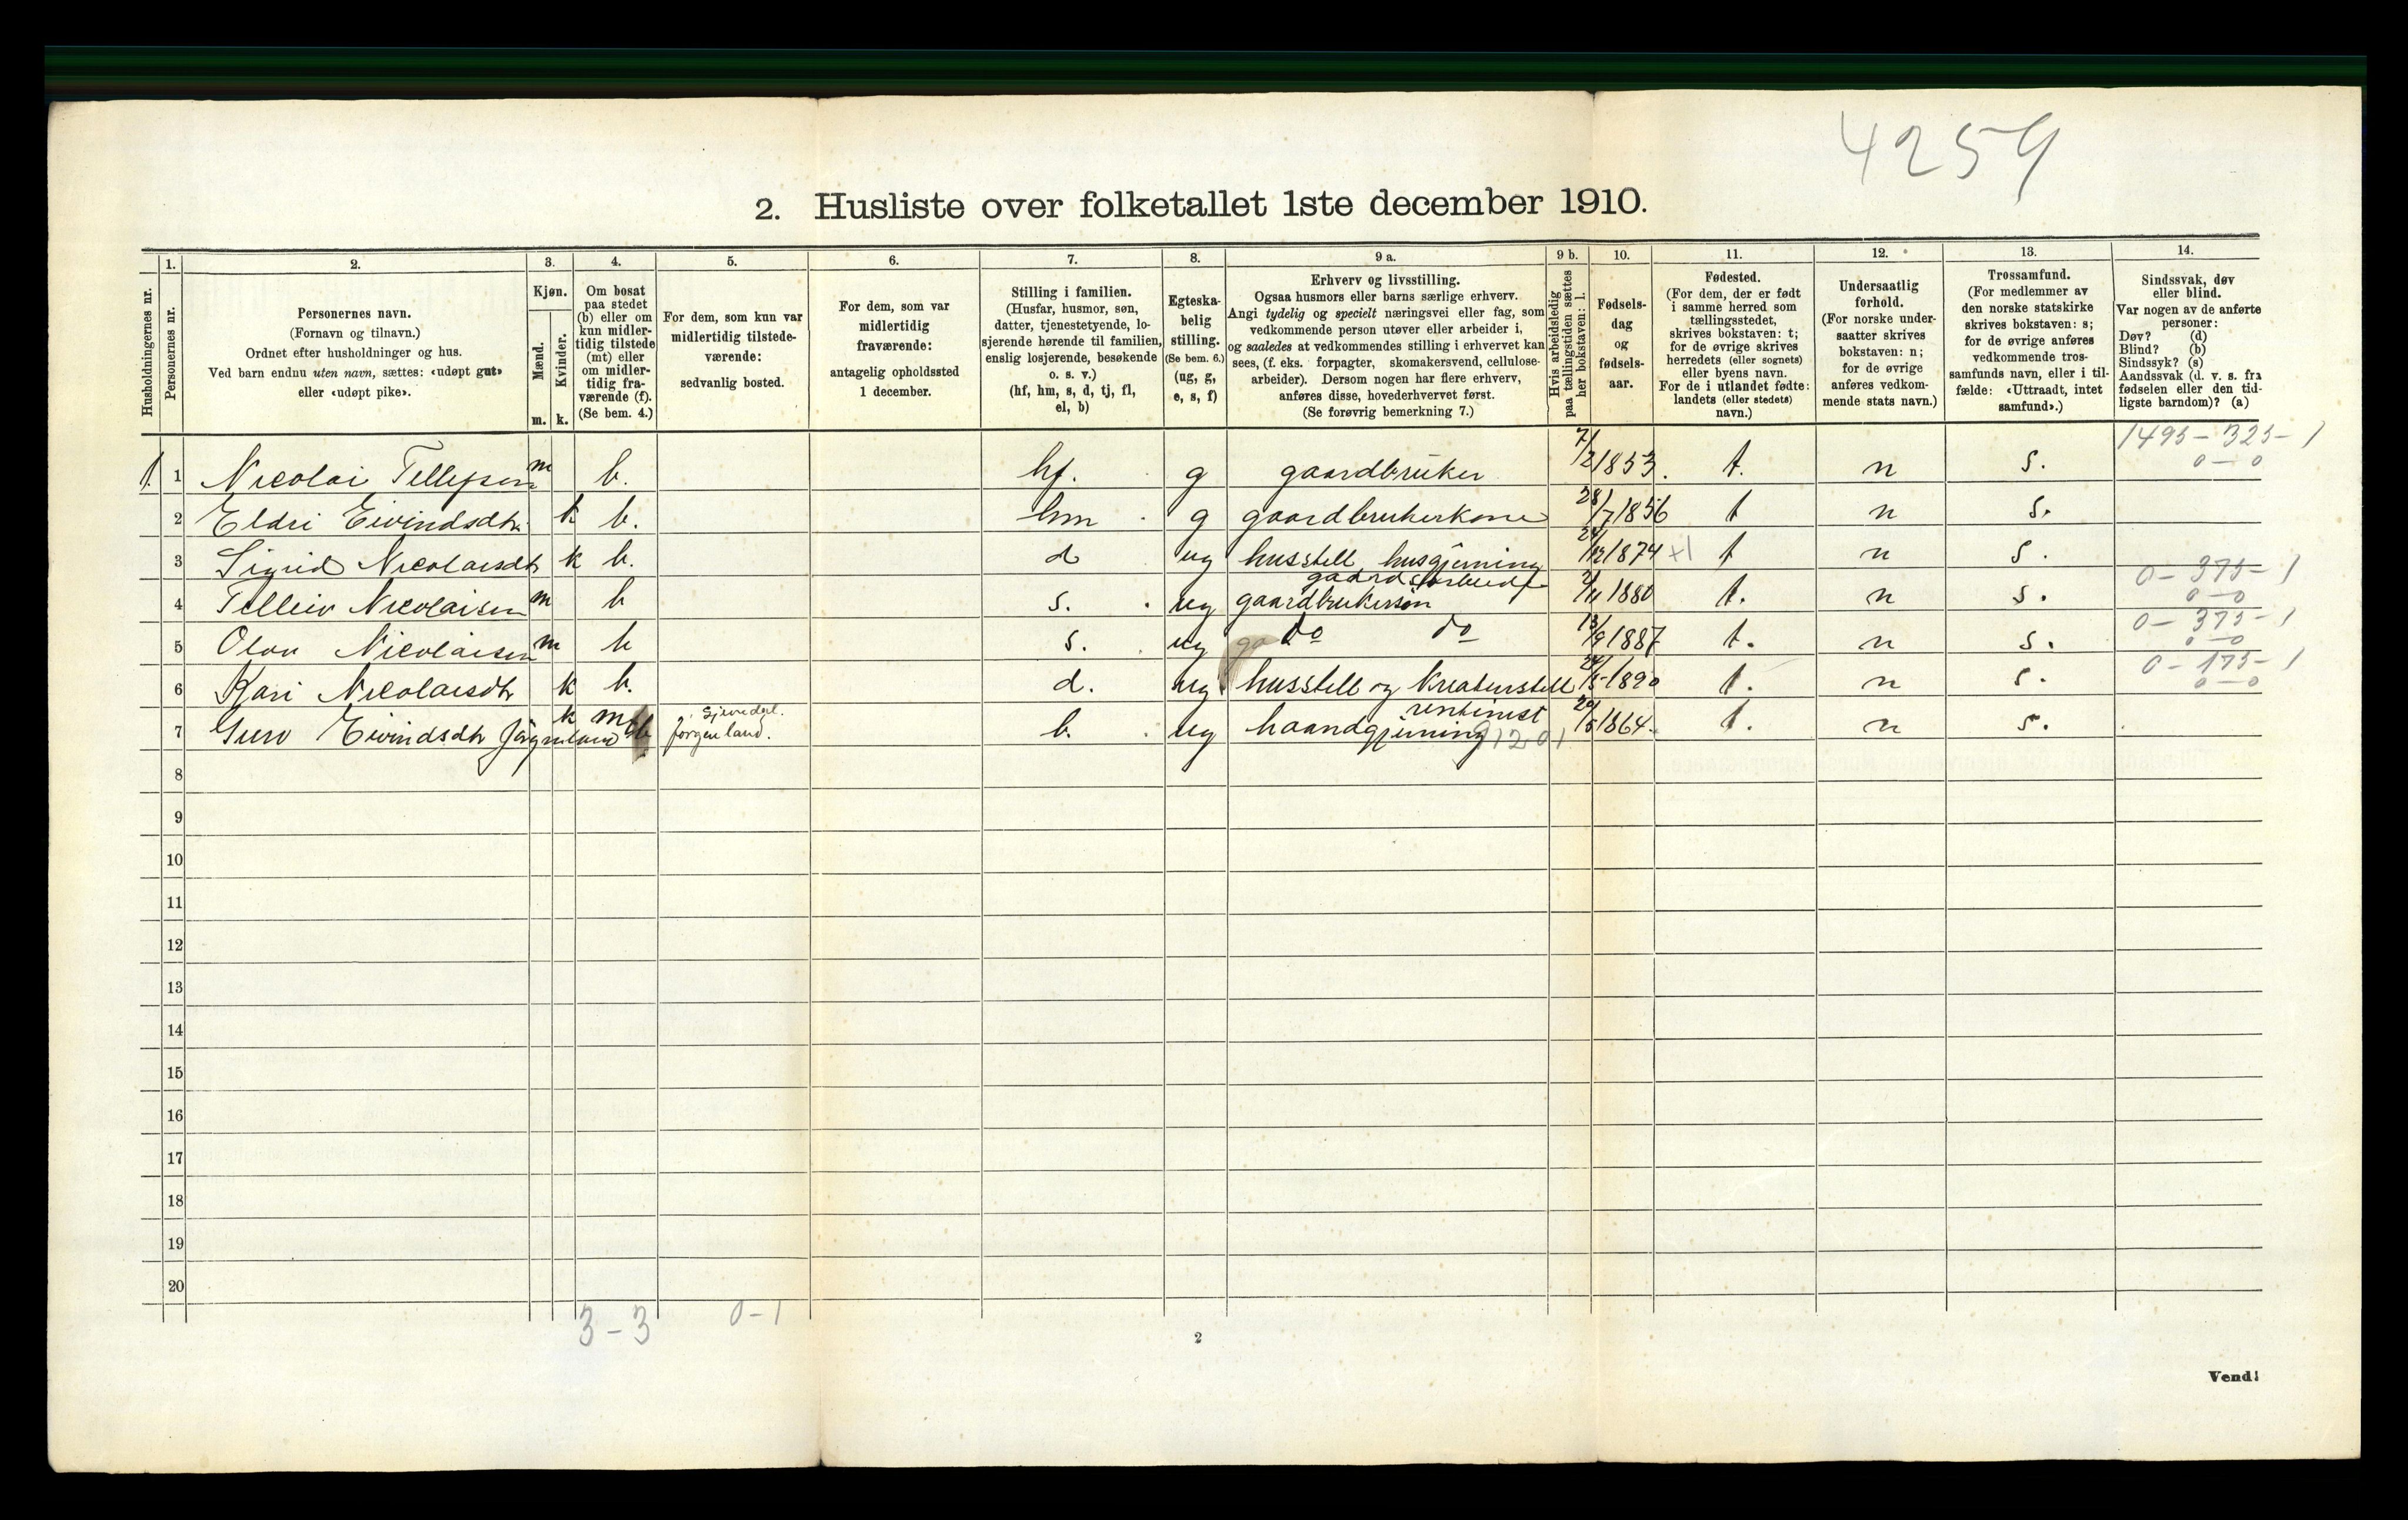 4259
2. Husliste over folketallet 1ste december 1910.
Husholdningernes nr.
1.
Personernes nr.
2.
Personernes navn.
(Fornavn og tilnavn.)
Ordnet efter husholdninger og hus.
Ved barn endnu uten navn, sættes: «udøpt gut»
eller «udøpt pike».
3.
Kjøn.
Mænd.
Kvinder.
m. k.
4.
Om bosat
paa stedet
(b) eller om
kun midler-
tidig tilstede
(mt) eller
om midler-
tidig fra-
værende (f).
(Se bem. 4.)
5.
For dem, som kun var
midlertidig tilstede-
værende:
sedvanlig bosted.
6.
For dem, som var
midlertidig
fraværende:
antagelig opholdssted
1 december.
7.
Stilling i familien.
(Husfar, husmor, søn,
datter, tjenestetyende, lo-
sjerende hørende til familien,
enslig losjerende, besøkende
o. s. v.)
(hf, hm, s, d, tj, fl,
el, b)
8.
Egteska-
belig
stilling.
(Se bem. 6.)
(ug, g,
e, s, f)
9 a.
Erhverv og livsstilling.
Ogsaa husmors eller barns særlige erhverv.
Angi tydelig og specielt næringsvei eller fag, som
vedkommende person utøver eller arbeider i,
og saaledes at vedkommendes stilling i erhvervet kan
sees, (f. eks. forpagter, skomakersvend, cellulose-
arbeider). Dersom nogen har flere erhverv,
anføres disse, hovederhvervet først.
(Se forøvrig bemerkning 7.)
9 b.
Hvis arbeidsledig
paa tællingstiden sættes
her bokstaven: l.
10.
Fødsels-
dag
og
fødsels-
aar.
11.
Fødested.
(For dem, der er født
i samme herred som
tællingsstedet,
skrives bokstaven: t;
for de øvrige skrives
herredets (eller sognets)
eller byens navn.
For de i utlandet fødte:
landets (eller stedets)
navn.)
12.
Undersaatlig
forhold.
(For norske under-
saatter skrives
bokstaven: n;
for de øvrige
anføres vedkom-
mende stats navn.)
13.
Trossamfund.
(For medlemmer av
den norske statskirke
skrives bokstaven: s;
for de øvrige anføres
vedkommende tros-
samfunds navn, eller i til-
fælde: «Uttraadt, intet
samfund».)
14.
Sindssvak, døv
eller blind.
Var nogen av de anførte
personer:
Døv? (d)
Blind? (b)
Sindssyk? (s)
Aandssvak (d. v. s. fra
fødselen eller den tid-
ligste barndom)? (a)
1 1 Nicolai Tellefsen m b. hf. g gaardbruker 7/2 1853. t. n s. 1495-325-1 0-0
2 Eldri Eivindsdtr. k b. hm g gaardbrukerkone 28/7 1856 t n s.
3 Sigrid Nicolaisdtr k b. d ug husstell husgjerning 1874 +1 t n s.
4 Telleiv Nicolaisen m b s. ug gaardbrukersøn gaardsarbeide 1880 t. n s. 0-375-1 0-0
5 Olav Nicolaisen m b s. ug do do 13/9 1887 t. n s. 0-375-1 0-0
6 Kari Nicolaisdtr k b. d. ug husstell og kreaturstell 24/5 1890 t. n s. 0-175-1 0-0
7 Guro Eivindsdtr k mt Gjevedal. Jørgenland. b. ug haandgjerning rentenist 1864. t. n s.
8
9
10
11
12
13
14
15
16
17
18
19
20
3-3 0-1
2
Vend!